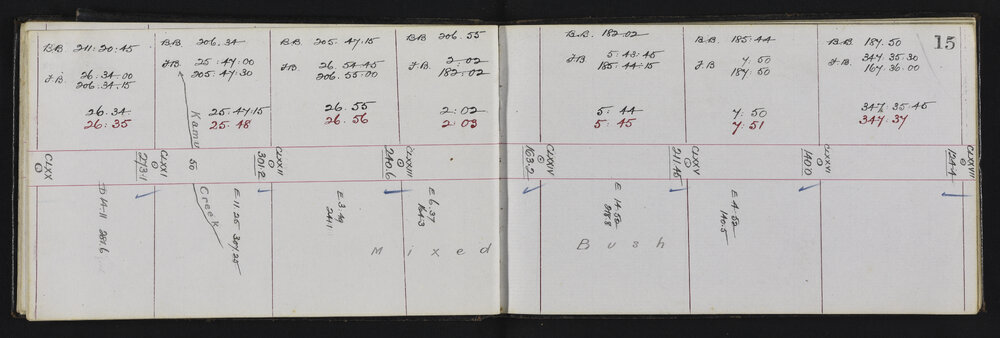 15
B.B. 211:20:45
F.B. 26.34.00
206.34.15
26.34
26:35
B.B. 206.34
F.B. 25:47:00
205.47.30
25.47.15
25.48
B.B. 205.47.15
F.B. 26.54.45
206.55.00
26.55
26.56
B.B. 206.55
F.B. 2:02
182:02
2:02
2:03
B.B. 182.02
F.B. 5:43:45
185.44.15
5:44
5:45
B.B. 185:44
F.B. 7:50
187:50
7:50
7:51
B.B. 187.50
F.B. 347.35.30
167.36.00
347.35.45
347.37
CLXX
273.1
CLXXI
301.2
CLXXII
240.6
CLXXIII
163.2
CLXXIV
211.45
CLXXV
140.0
CLXXVI
124.4
CLXXVII
50
Creek
E 11.25 307.25
E 3.40
241.1
E 6.37
164.3
E 14.50
E 4.52
140.5
Mixed Bush